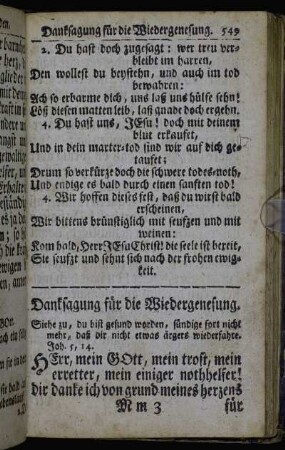 Danksagung für die Wiedergenesung. 549
2. Du hast doch zugesagt: wer treu ver-
bleibt im harren,
Den wollest du beystehn, und auch im tod
bewahren:
Ach so erbarme dich, uns laß uns hülfe sehn!
Löß diesen matten leib, laß gnade doch ergehn.
4. Du hast uns, JEsu! doch mit deinem
blut erkaufet,
Und in dein marter-tod sind wir auf dich ge-
taufet;
Drum so verkürze doch die schwere todes-noth,
Und endige es bald durch einen sanften tod!
4. Wir hoffen dieses fest, daß du wirst bald
erscheinen,
Wir bittens brünstiglich mit seufzen und mit
weinen:
Kom bald, HErr JEsu Christ! die seele ist bereit,
Sie seufzt und sehnt sich nach der frohen ewig-
keit.
Danksagung für die Wiedergenesung.
Siehe zu, du bist gesund worden, sündige fort nicht
mehr, daß dir nicht etwas ärgers wiederfahre.
Joh. 5, 14.
HErr, mein GOtt, mein trost, mein
erretter, mein einiger nothhelfer!
dir danke ich von grund meines herzens
Mm 3 für